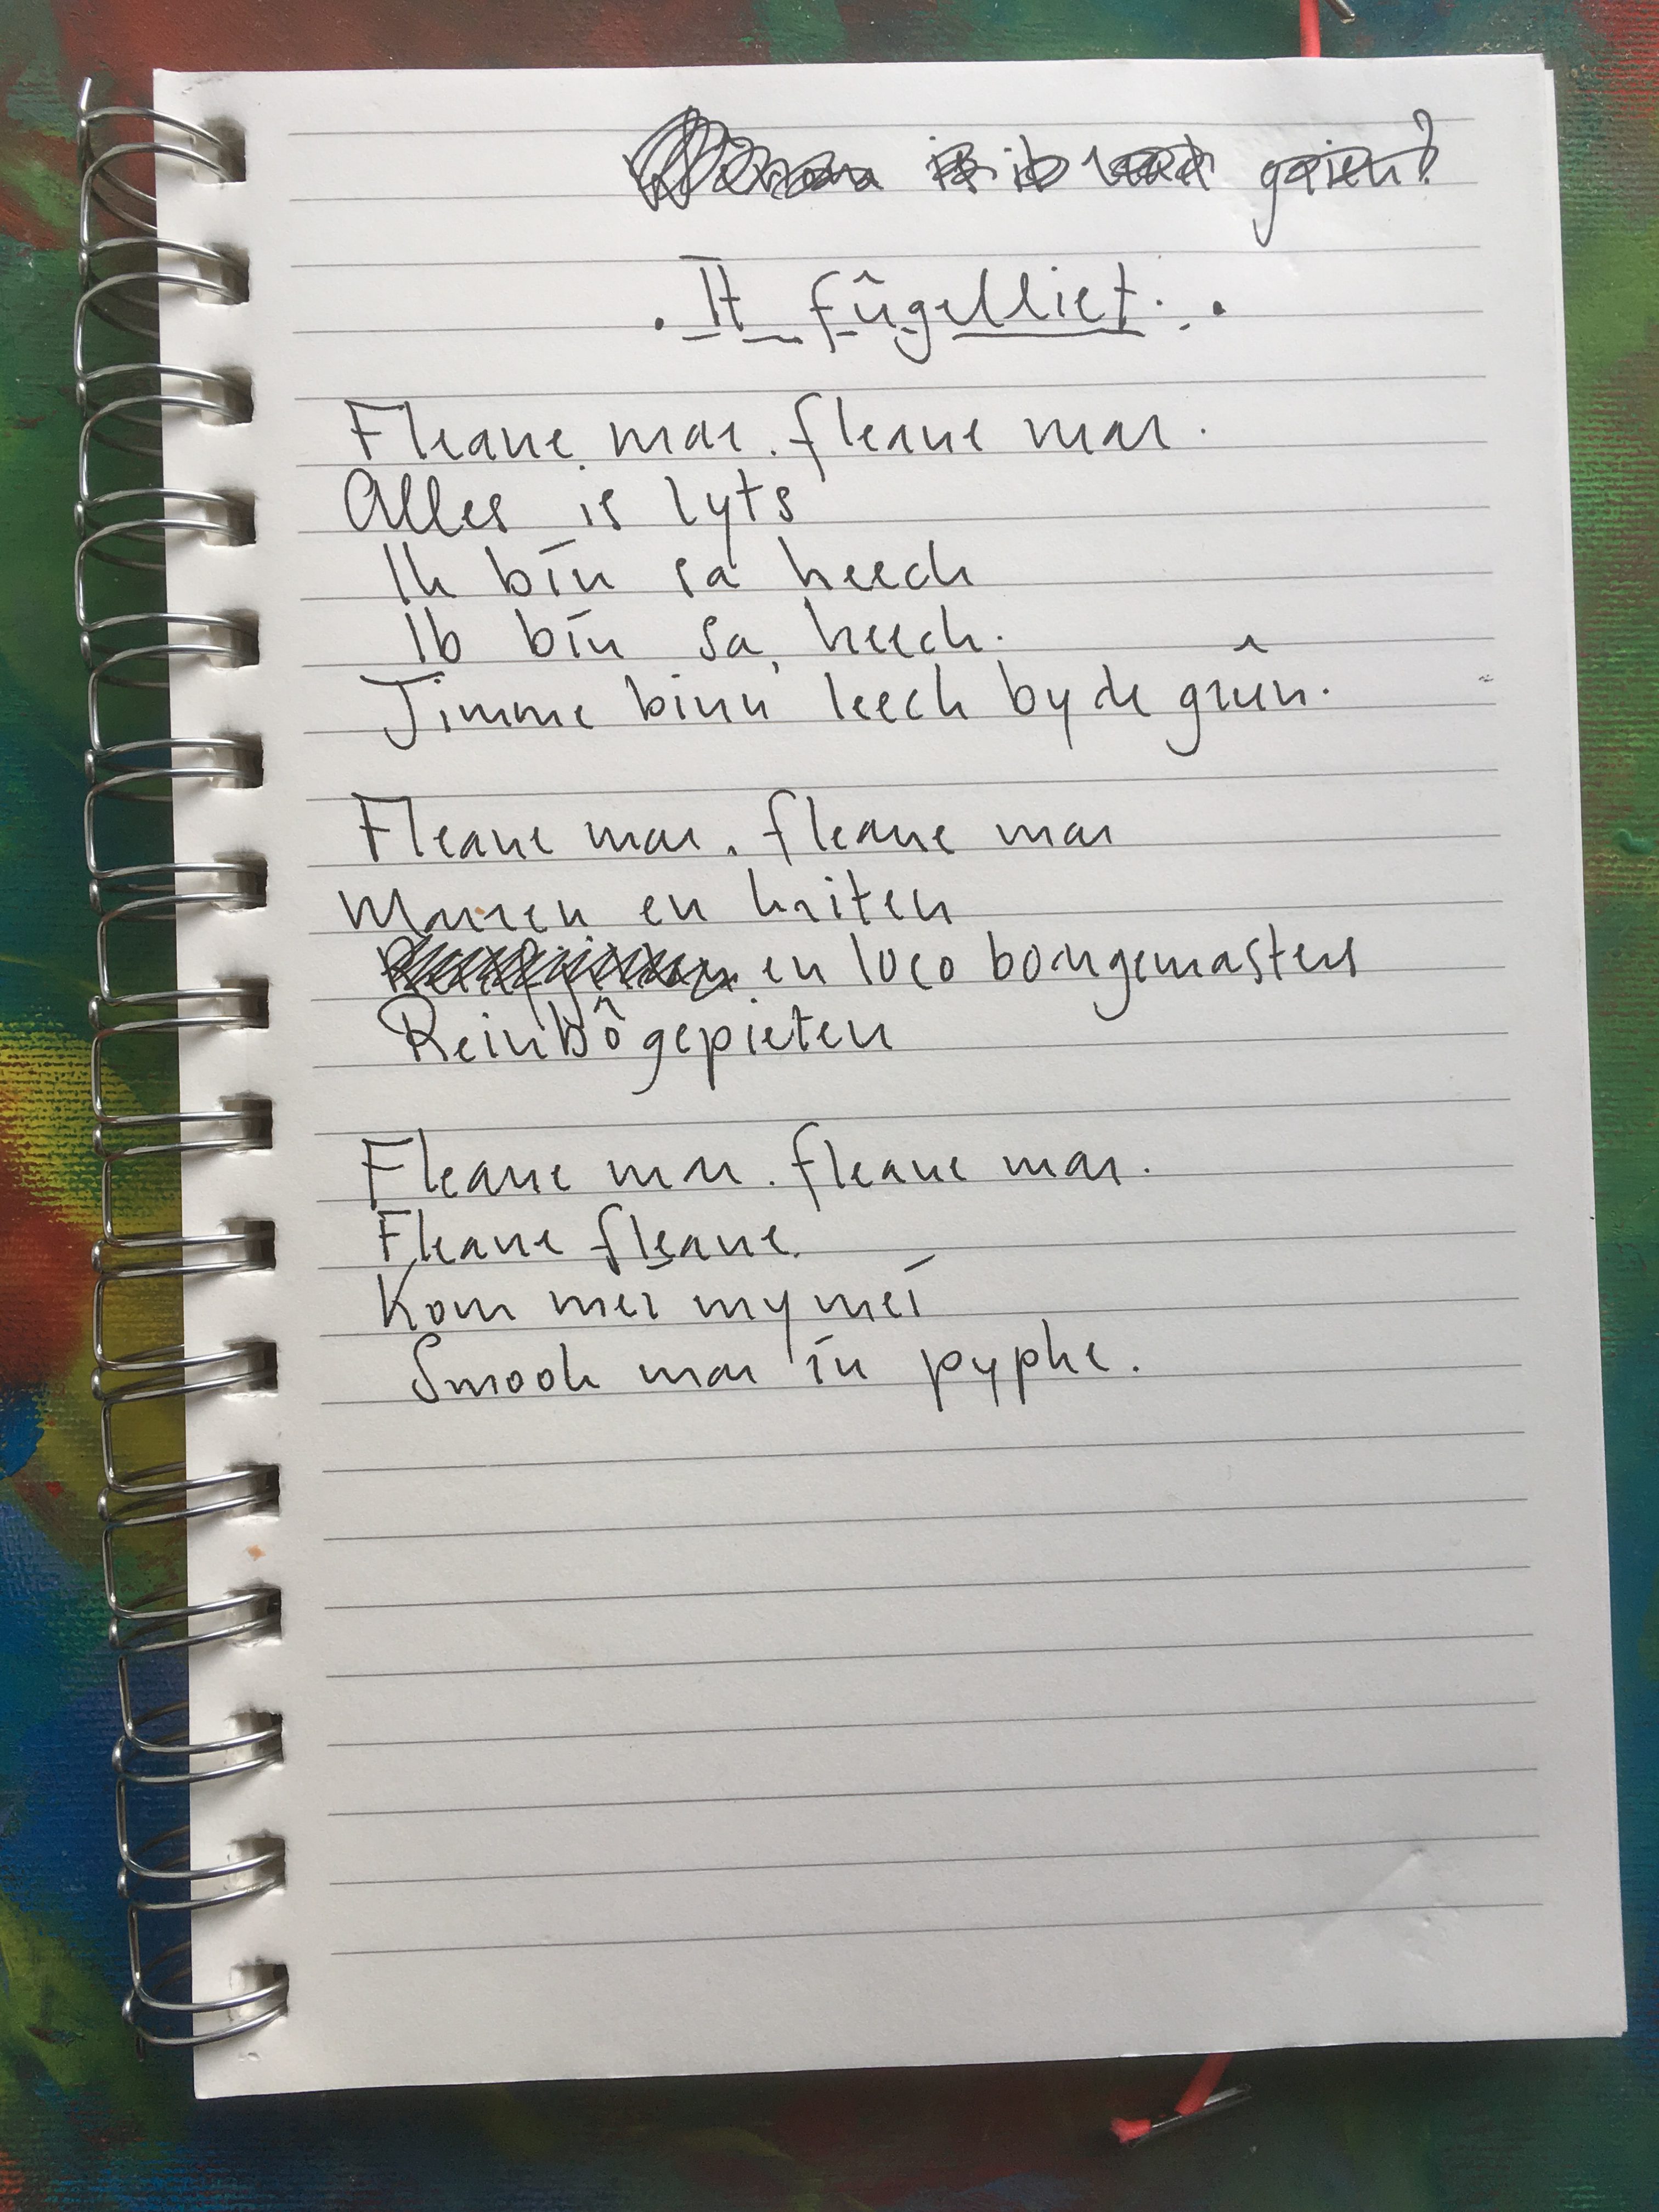 gaien?
. It fûgelliet . .
Fleane mar. fleane mar.
Alles is lyts
Ik bin sa heech
Ik bin sa heech.
Jimme binn' leech by de grûn.
Fleane mar. fleane mar
Marren en kriten
en loco boargemasters
Reinbôgepieten
Fleane mar. fleane mar.
Fleane fleane.
Kom mei my mei
Smook mar in pypke.